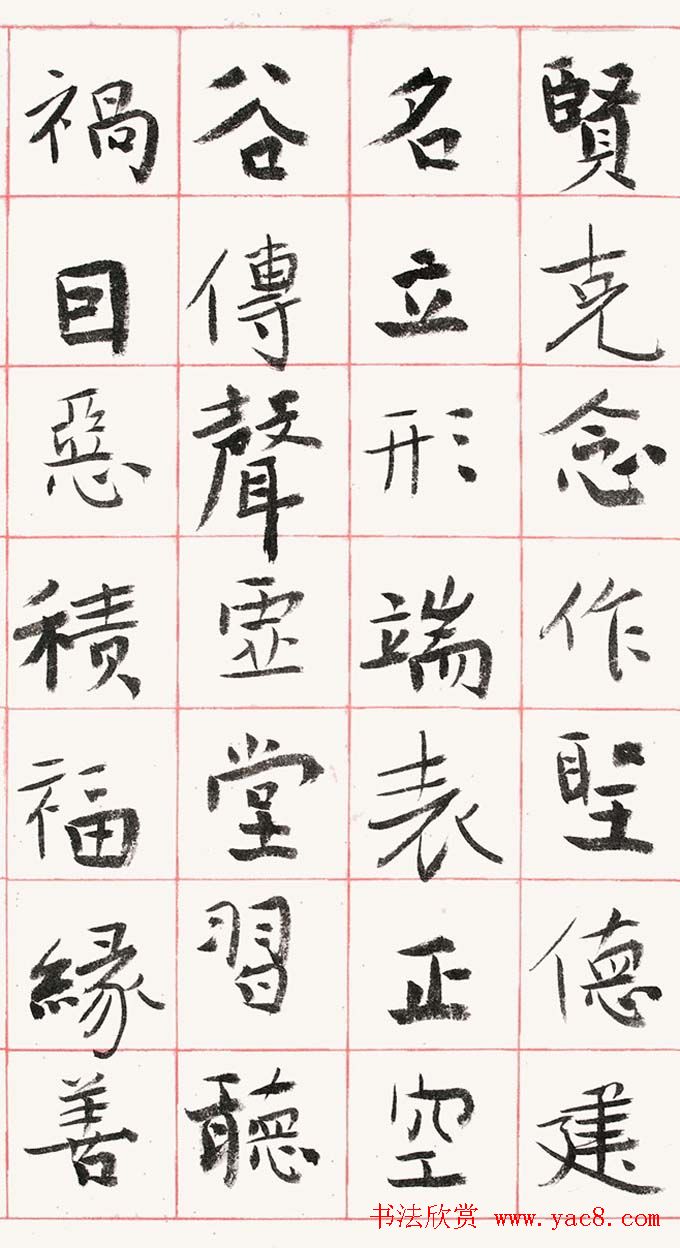 賢克念作聖德建
名立形端表正空
谷傳聲虛堂習聽
禍因惡積福緣善
书法欣赏 www.yac8.com